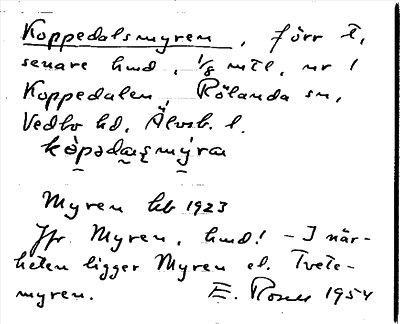 Koppedalsmyren, förr t,
senare hmd, 1/8 mtl, nr 1
Koppedalen, Rölanda sn,
Vedbo hd, Älvsb. l.
Myren hb 1923
Jfr Myren, hmd! - I när-
heten ligger Myren el. Tvete-
myren. E. 1954